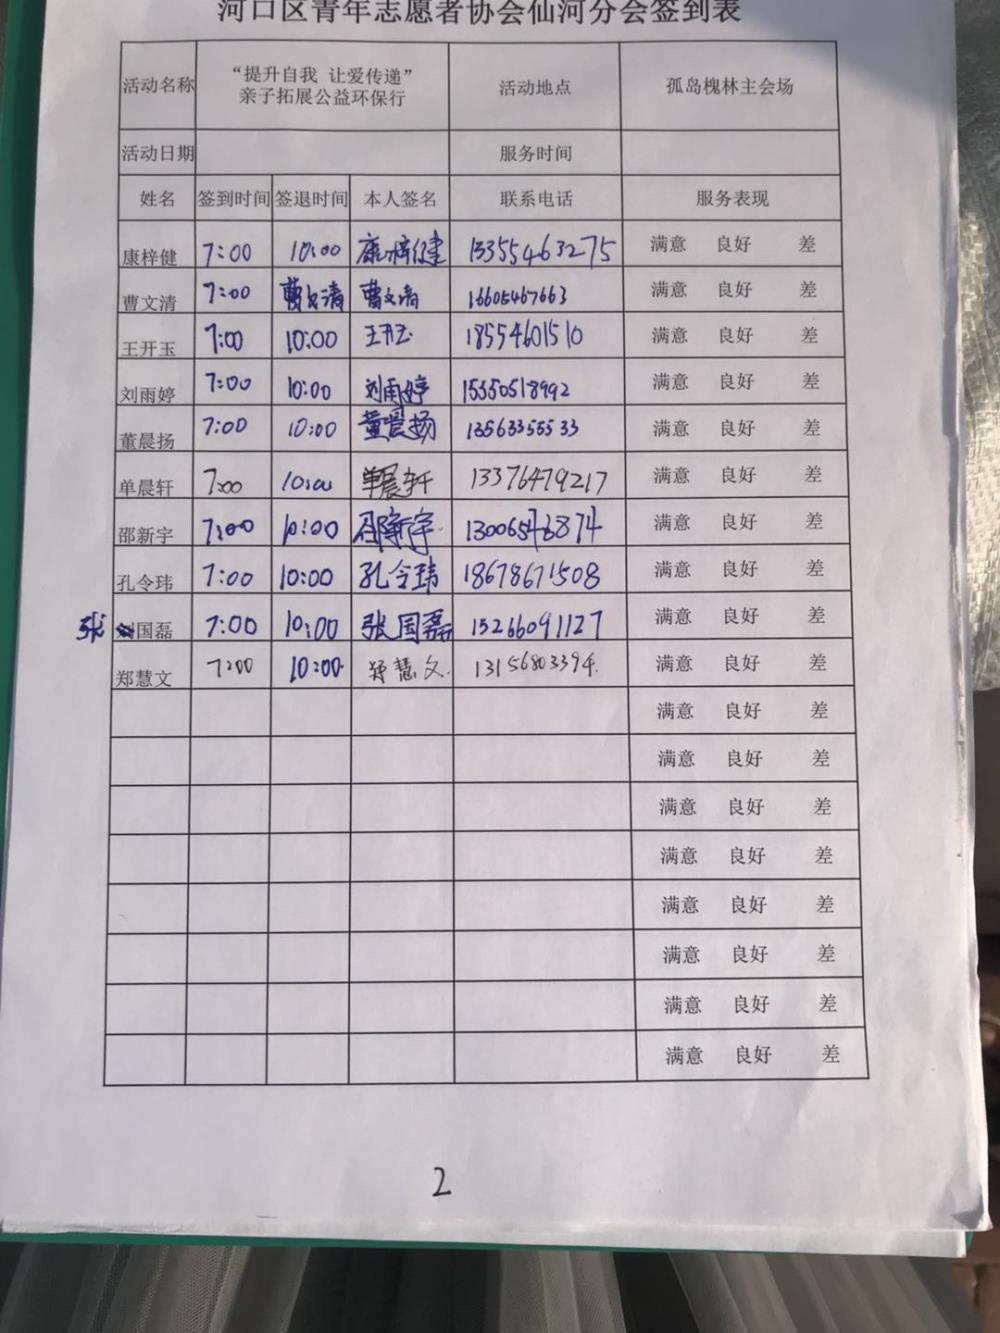 河口区青年志愿者协会仙河分会签到表
活动名称 “提升自我 让爱传递” 亲子拓展公益环保行 活动地点 孤岛槐林主会场
活动日期 服务时间
姓名 签到时间 签退时间 本人签名 联系电话 服务表现
康梓健 7:00 10:00 康梓健 13355463275 满意 良好 差
曹文清 7:00 曹文清 曹文清 16605467663 满意 良好 差
王开玉 7:00 10:00 王开玉 18554601510 满意 良好 差
刘雨婷 7:00 10:00 刘雨婷 15350518992 满意 良好 差
董晨扬 7:00 10:00 董晨扬 13563355533 满意 良好 差
单晨轩 7:00 10:00 单晨轩 13376479217 满意 良好 差
邵新宇 7:00 10:00 邵新宇 满意 良好 差
孔令玮 7:00 10:00 孔令玮 18678671508 满意 良好 差
张国磊 7:00 10:00 张国磊 15266091127 满意 良好 差
郑慧文 7:00 10:00 郑慧文 13156803394 满意 良好 差
满意 良好 差
满意 良好 差
满意 良好 差
满意 良好 差
满意 良好 差
满意 良好 差
满意 良好 差
满意 良好 差
2